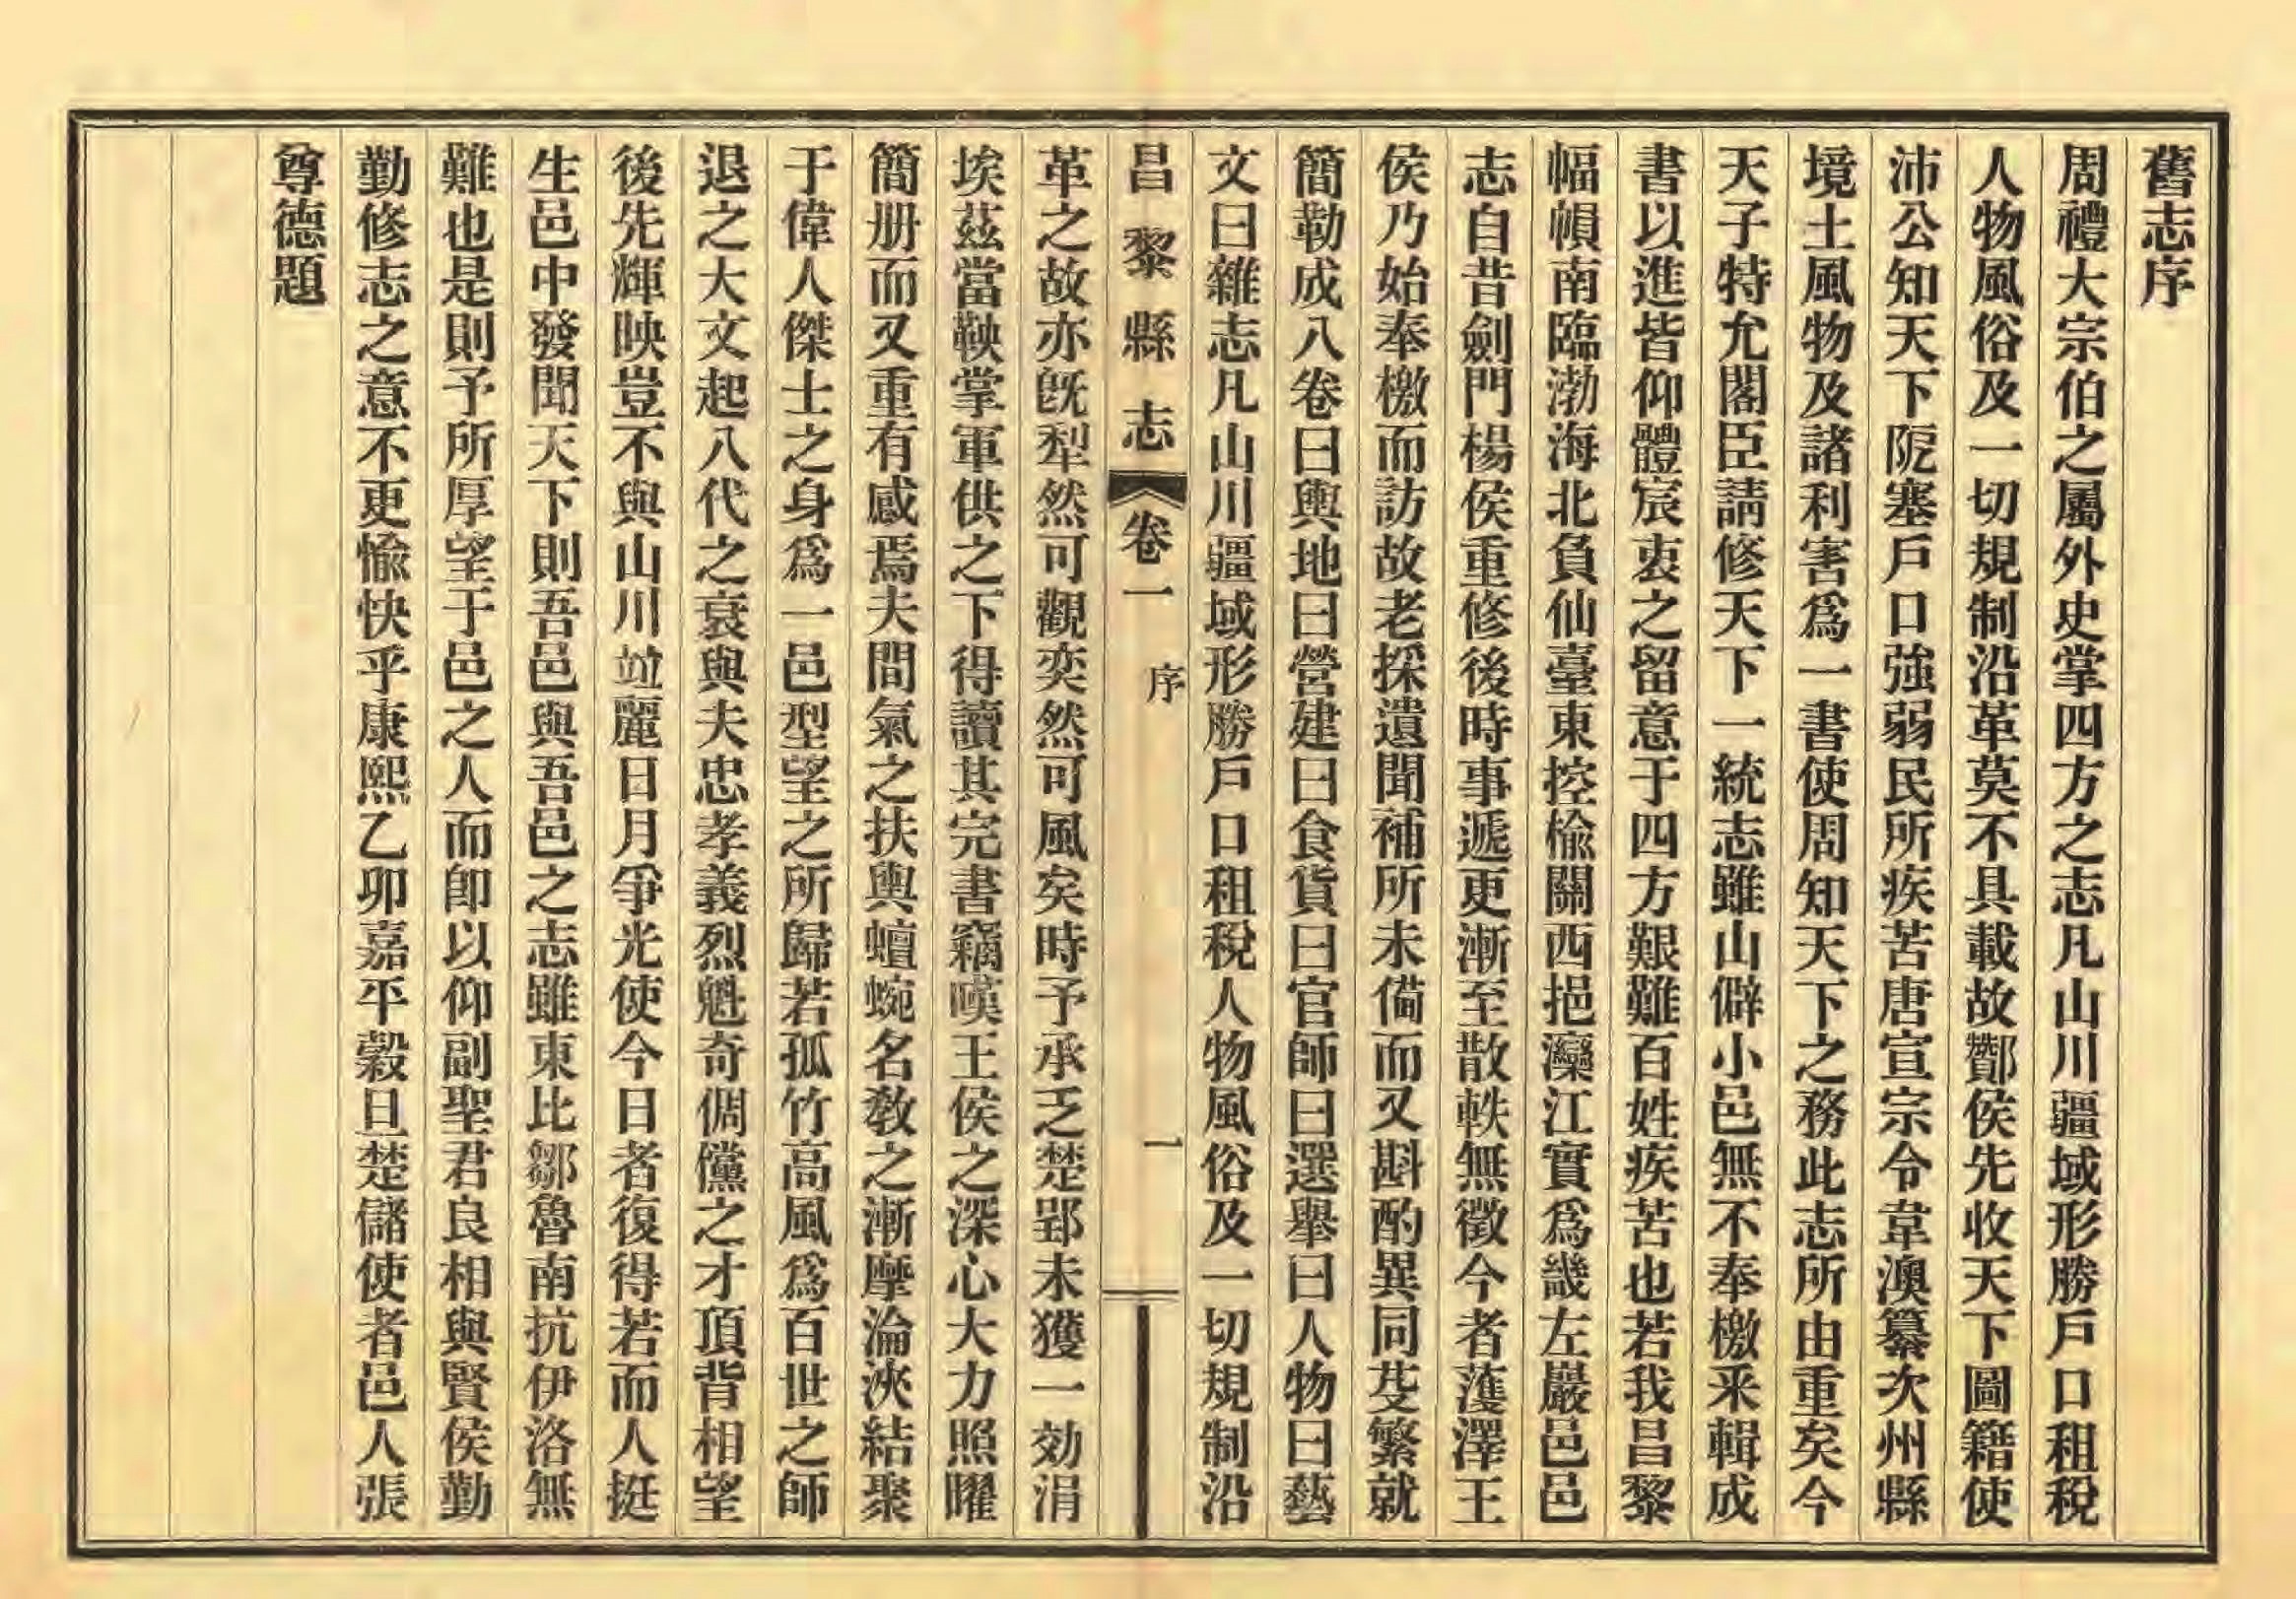 舊志序
周禮大宗伯之屬外史掌四方之志凡山川疆域形勝戶口租稅
人物風俗及一切規制沿革莫不具載故酇侯先收天下圖籍使
沛公知天下阨塞戶口強弱民所疾苦唐宣宗令韋澳纂次州縣
境土風物及諸利害爲一書使周知天下之務此志所由重矣今
天子特允閣臣請修天下一統志雖山僻小邑無不奉檄釆輯成
書以進皆仰體宸衷之留意于四方艱難百姓疾苦也若我昌黎
幅幀南臨渤海北負仙臺東控楡關西挹灤江實爲畿左巖邑邑
志自昔劍門楊侯重修後時事遞更漸至散軼無徵今者濩澤王
侯乃始奉檄而訪故老採遺聞補所未備而又斟酌異同芟繁就
簡勒成八卷曰輿地曰營建曰食貨曰官師曰選舉曰人物曰藝
文曰雜志凡山川疆域形勝戶口租稅人物風俗及一切規制沿
昌黎縣志 卷一 序 一
革之故亦旣犁然可觀奕然可風矣時予承乏楚郢未獲一効涓
埃茲當鞅掌軍供之下得讀其完書竊嘆王侯之深心大力照曜
簡册而又重有感焉夫間氣之扶輿蟺蜿名敎之漸摩淪浹結聚
于偉人傑士之身爲一邑型望之所歸若孤竹高風爲百世之師
退之大文起八代之衰與夫忠孝義烈魁奇倜儻之才頂背相望
後先輝映豈不與山川竝麗日月爭光使今日者復得若而人挺
生邑中發聞天下則吾邑與吾邑之志雖東比鄒魯南抗伊洛無
難也是則予所厚望于邑之人而卽以仰副聖君良相與賢侯勤
勤修志之意不更愉快乎康熙乙卯嘉平穀旦楚儲使者邑人張
尊德題